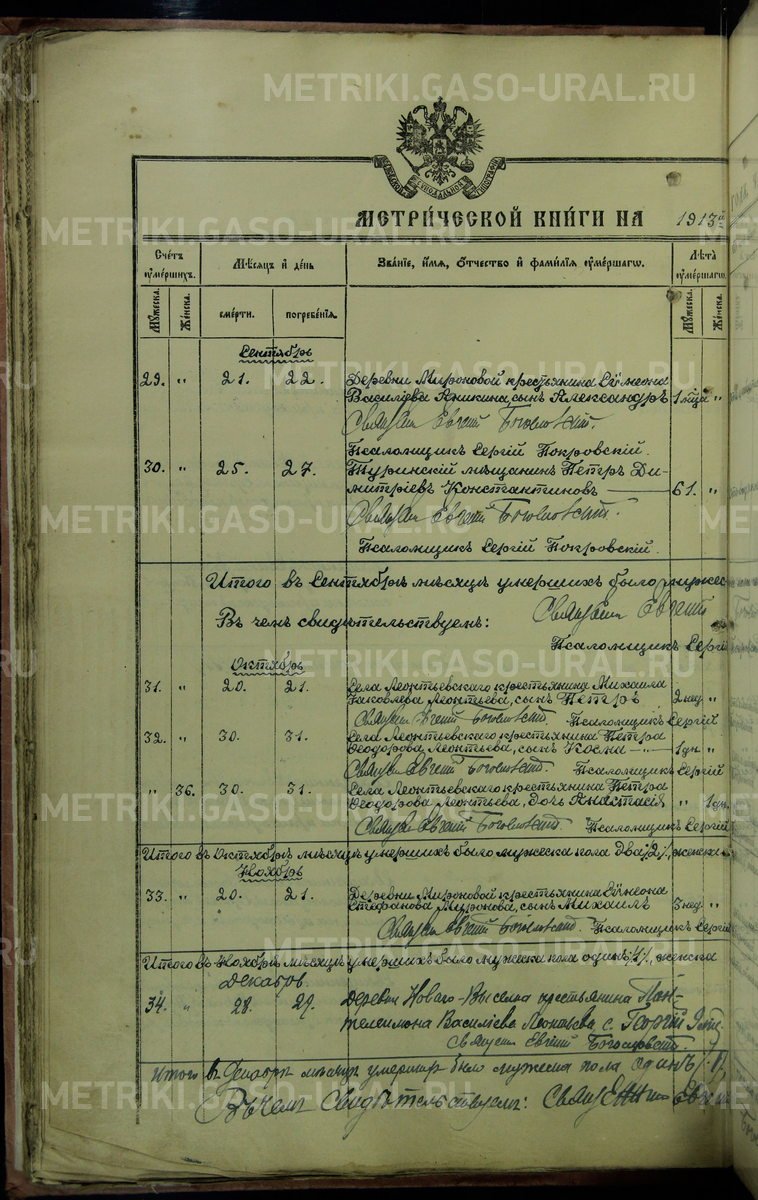 МЕТРИ́ЧЕСКОЙ КНИ́ГИ НА 1913 й
Сче́тъ ᲂу҆ме́ршихъ.
Мѣ́сяцъ и҆ де́нь
Зва́нїе, и҆́мя, ѻ҆́тчество и҆ фами́лїя ᲂу҆ме́ршагѡ.
Лѣ́та ᲂу҆ме́ршагѡ.
Му́жеска. Же́нска. сме́рти. погребе́нїя. Му́жеска. Же́нска.
Сентябрь
29. " 21. 22. Деревни Мироновой крестьянина Сѵмеона
Василіева Аникина, сынъ Александръ 1 мѣца "
Священ Евгеній Богословскій.
Псаломщикъ Сергій Покровскій.
30. " 25. 27. Туринскій мѣщанинъ Петръ Ди-
митріевъ Константиновъ — 61. "
Священ Евгеній Богословскій.
Псаломщикъ Сергій Покровскій.
Итого въ Сентябрѣ мѣсяцѣ умершихъ было мужес
Въ чемъ свидѣтельствуемъ: Священ Евгеній
Псаломщикъ Сергі
Октябрь
31. " 20. 21. Села Леонтьевскаго крестьянина Михаила
Іаковлева Леонтьева, сынъ Петръ 2 нед "
Священ Евгеній Богословскій. Псаломщикъ Сергій
32. " 30. 31. Села Леонтьевскаго крестьянина Петра
Ѳеодорова Леонтьева, сынъ Косма — " — 1 дн "
Священ Евгеній Богословскій. Псаломщикъ Сергій
" 36. 30. 31. Села Леонтьевскаго крестьянина Петра
Ѳеодорова Леонтьева, дочь Анастасія " 1 дн.
Священ Евгеній Богословскій. Псаломщикъ Сергій
Итого въ Октябрѣ мѣсяцѣ умершихъ было мужеска пола два /2/, женска
Ноябрь
33. " 20. 21. Деревни Мироновой крестьянина Сѵмеона
Стефанова Миронова, сынъ Михаилъ 3 нед. "
Священ Евгеній Богословскій. Псаломщикъ Сергій
Итого въ Ноябрѣ мѣсяцѣ умершихъ было мужеска пола одинъ /1/, женска
Декабрь.
34. " 28. 29. Деревни Новаго-Выселка крестьянина Пан-
телеимона Василіева Леонтьева с. Георгій
Священ Евгеній Богословскій
Итого въ Декабрѣ мѣсяцѣ умершихъ было мужеска пола одинъ /1/
Въ чемъ свидѣтельствуемъ: Священникъ Евгеній
METRIKI.GASO-URAL.RU